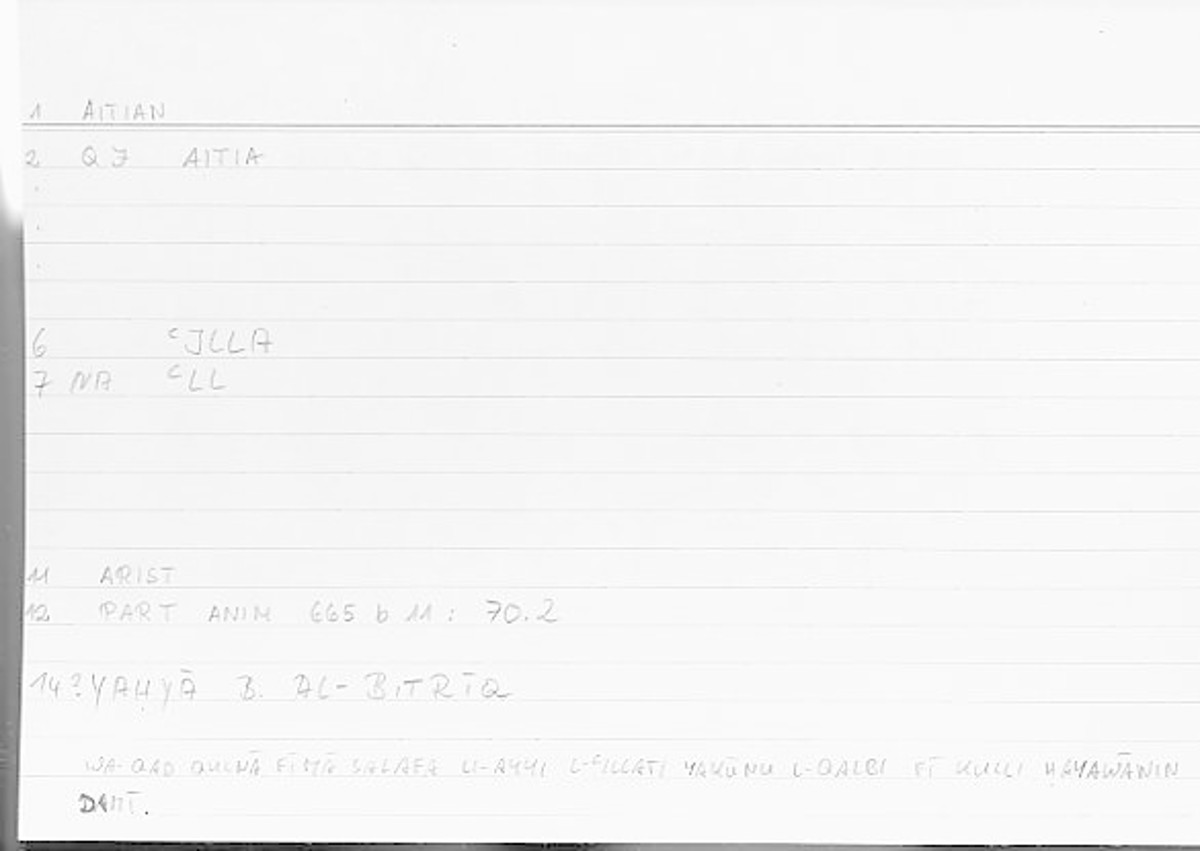 1 AITIAN
2 QJ AITIA
.
.
.
6 ʿJLLA
7 NA ʿLL
11 ARIST
12 PART ANIM 665 b 11: 70.2
14 ? YAḤYĀ B. AL-BITRĪQ
WA-QAD QULNĀ FĪMĀ SALAFA LI-AYYI L-ʿILLATI YAKŪNU L-QALBI FĪ KULLI ḤAYAWĀNIN
DAMĪ.